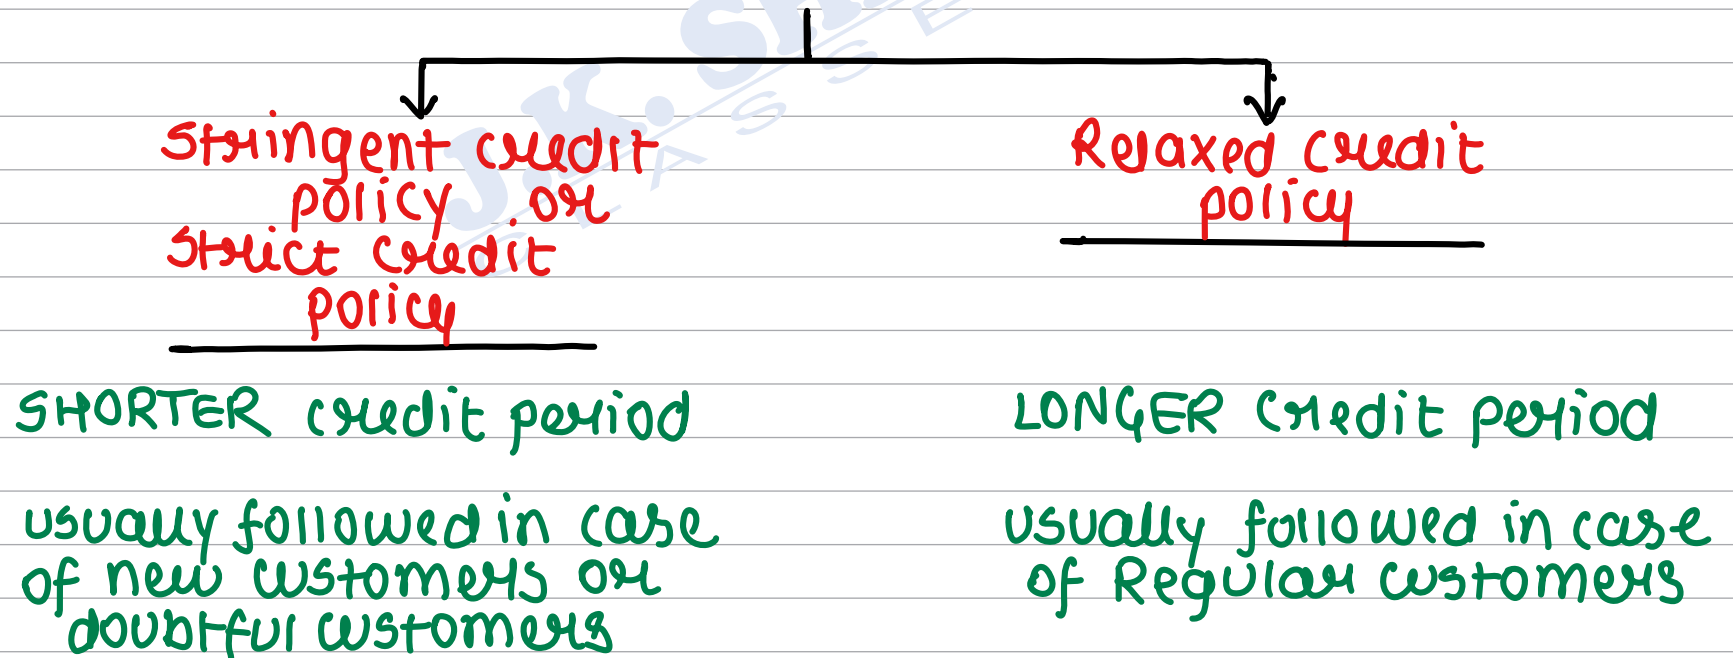 Stringent credit
policy or
Strict credit
policy
SHORTER credit period
usually followed in case
of new customers or
doubtful customers
Relaxed credit
policy
LONGER credit period
usually followed in case
of Regular customers
J.K. SH
CLASSE